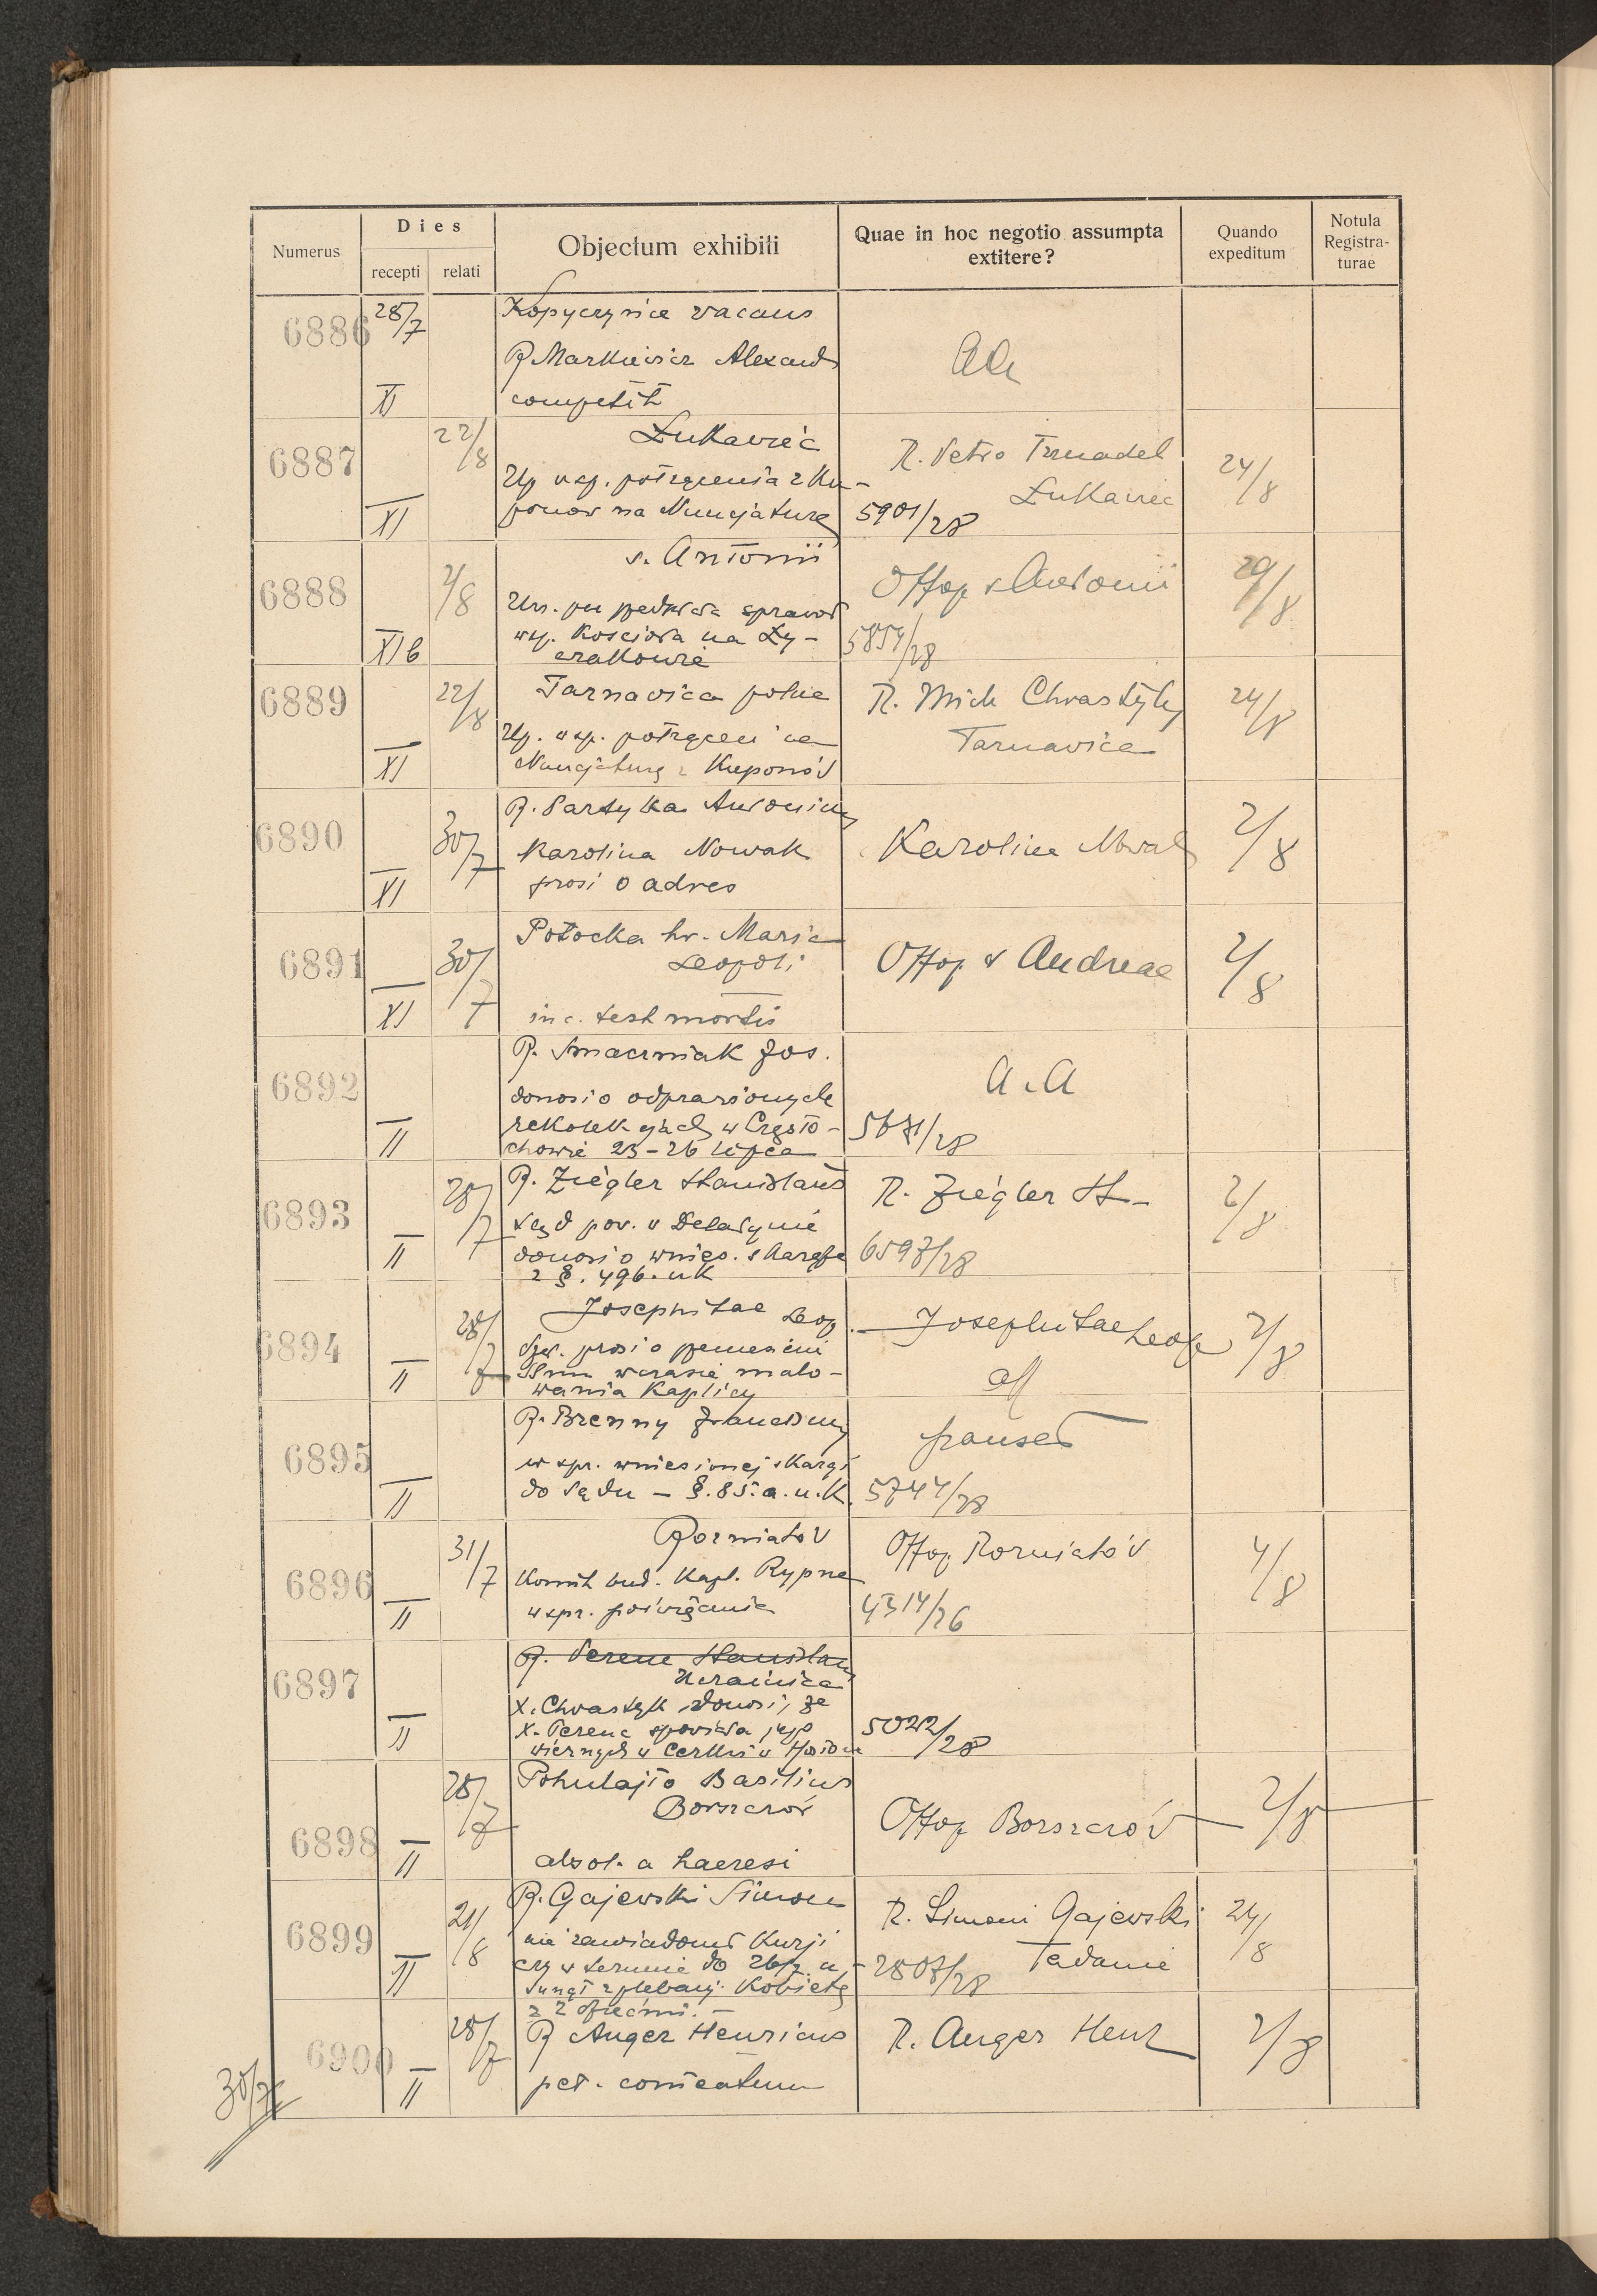 Numerus
Dies
recepti
relati
Objectum exhibiti
Quae in hoc negotio assumpta extitere?
Quando expeditum
Notula Registra-
turae
6886
28/7
XI
Kopyczynce vacans
R. Markiewicz Alexand
competit
aa
6887
22/8
XI
Łukawiec
Up wsp. potrącenia z ku-
ponów na Nuncjaturę
R. Petro
Łukawiec
5901/28
24/8
6888
2/8
XIb
s. Antonii
wsp. Kościoła na Ły-
czakowie
Offop s Antonii
29/8
6889
22/8
XI
Tarnavica polne
Up. wsp. potrąceń na
Nuncjaturę z Kuponów
R. Mich Chwastyk
Tarnavica
24/8
6890
30/7
XI
R. Partyka Antonius
Karolina Nowak
prosi o adres
Karolina Nowak
2/8
6891
30/7
XI
Potocka hr. Maria
Leopoli
in c. test mortis
Offop s Andreae
2/8
6892
II
R. Smaczniak Jos.
donosi o odprawionych
rekolekcjach w Często-
chowie 23-26 lipca
a.a
5671/28
6893
28/7
II
R. Ziegler Stanislaus
sąd pow. w Delatynie
donosi o wnies. skargę
z §. 496. uk
R. Ziegler St
6597/28
2/8
6894
28/7
II
Josephitae Leop.
prosi o
w czasie malo-
wania Kaplicy
Josephitae Leop
2/8
6895
II
R. Brenny Franciscus
w spr. wniesionej skargi
do Sądu - §. 85. a. u. K.
5744/28
6896
31/7
II
Rozniatów
Komit bud. Kapl. Rypne
w spr. poświęcenia
Offop Rozniatów
4314/26
4/8
6897
II
R. Terenc Stanislaus
X. Chwastyk donosi, że
X. Terenc spowiada jego
wiernych w cerkwi w
5022/28
6898
28/7
II
Pohulajło Basilius
Borszczów
absol. a haeresi
Offop Borszczów
2/8
6899
21/8
II
R. Gajewski Simon
nie zawiadomił Kurji
czy w terminie do 26/7 u-
sunął z plebanji Kobietę
z 2 dziećmi.
R. Simoni Gajewski
Tadanie
2807/28
24/8
6900
28/7
II
R Anger Henricus
pet. comeatum
R. Anger Henr
2/8